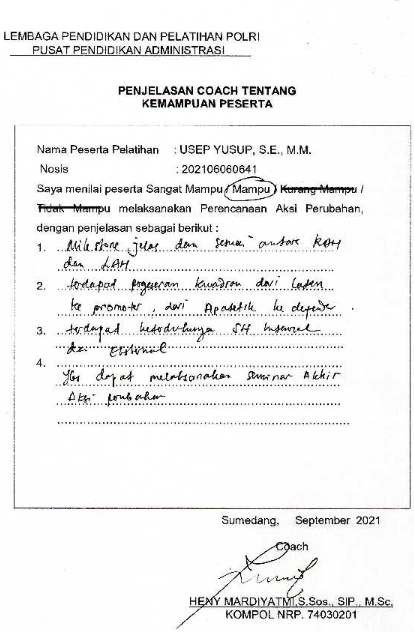 LEMBAGA PENDIDIKAN DAN PELATIHAN POLRI
PUSAT PENDIDIKAN ADMINISTRASI
PENJELASAN COACH TENTANG
KEMAMPUAN PESERTA
Nama Peserta Pelatihan : USEP YUSUP, S.E., M.M.
Nosis : 202106060641
Saya menilai peserta Sangat Mampu / Mampu / Kurang Mampu /
Tidak Mampu melaksanakan Perencanaan Aksi Perubahan,
dengan penjelasan sebagai berikut :
1. Milestone jelas dan sesuai antara
dan LAH
2. terdapat pergeseran kwadran dari laten
ke promotor, dari Apatetik ke defender.
3. terdapat SH Internal
dan Eksternal
4.
dapat melaksanakan seminar Akhir
Aksi perubahan
Sumedang, September 2021
Coach
HENY MARDIYATMI,S.Sos., SIP., M.Sc.
KOMPOL NRP. 74030201